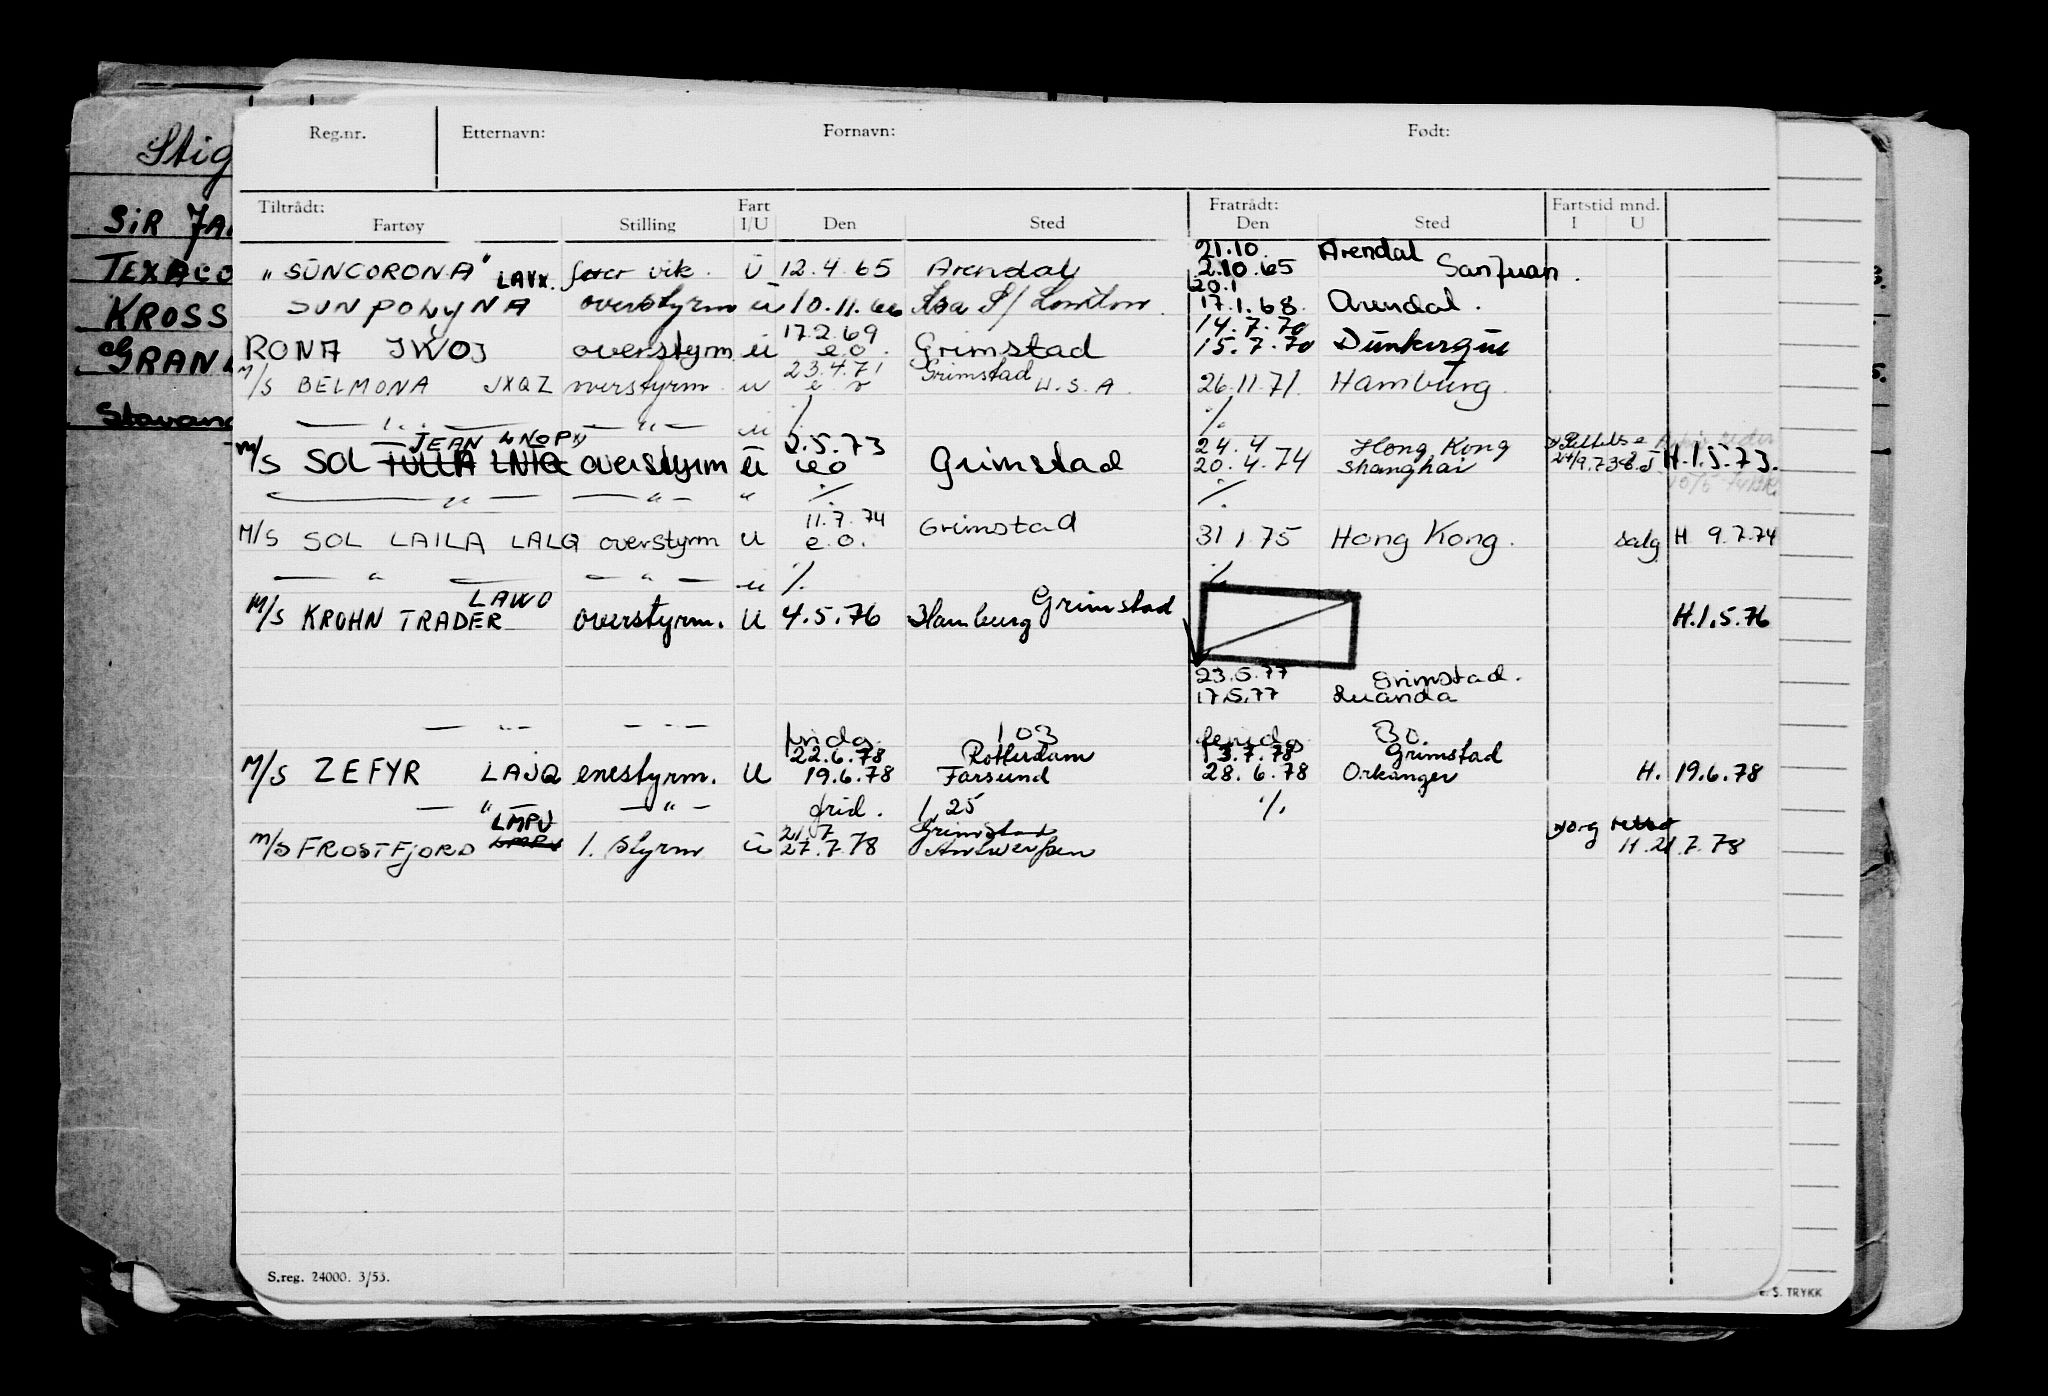 Reg.nr. Etternavn: Fornavn: Født:
Stig
Tiltrådt: Fart Fratrådt: Fartstid mnd.
Fartøy Stilling I/U Den Sted Den Sted I U
SiR JA
TEXACO
KROSS
GRAN
Stavang
21.10. Arendal
"SUNCORONA" LAVX. vik. U 12.4.65 Arendal 2.10.65 San Juan.
20.1
SUNPOLYNA overstyrm u 10.11.66 17.1.68. Arendal.
17.2.69 14.7.70
RONA JWOJ overstyrm u e.o. Grimstad 15.7.70 Dunkerque
23.4.71 Grimstad
M/S BELMONA JXQZ overstyrm. u U.S.A. 26.11.71. Hamburg.
— " — — " — u ٪ ٪
JEAN LNOP 2.5.73 24.4 Hong Kong
M/S SOL TULLA LNIQ overstyrm U e.o Grimstad 20.4.74 Shanghai 24/9.73 H.1.5.73.
— " — — " — " ٪ ٪
11.7.74 Grimstad
M/S SOL LAILA LALQ overstyrm U e.o. 31 1.75 Hong Kong. salg H 9.7.74
— " — — " — u ٪ ٪
LAWO Grimstad
M/S KROHN TRADER overstyrm. U 4.5.76 Hamburg H.1.5.76
23.5.77 Grimstad.
17.5.77 Luanda
— " — — " — 103
22.6.78 Rotterdam 3.7.78 Grimstad
M/S ZEFYR LAJQ enestyrm. U 19.6.78 Farsund 28.6.78 Orkanger H. 19.6.78
— " — — " — frid. 1,25 ٪
LMPU 21.7 Grimstad
M/S FROSTFJORD 1. styrm u 27.7.78 Antwerpen H.21.7.78
S.reg. 24000. 3/53.
S. TRYKK